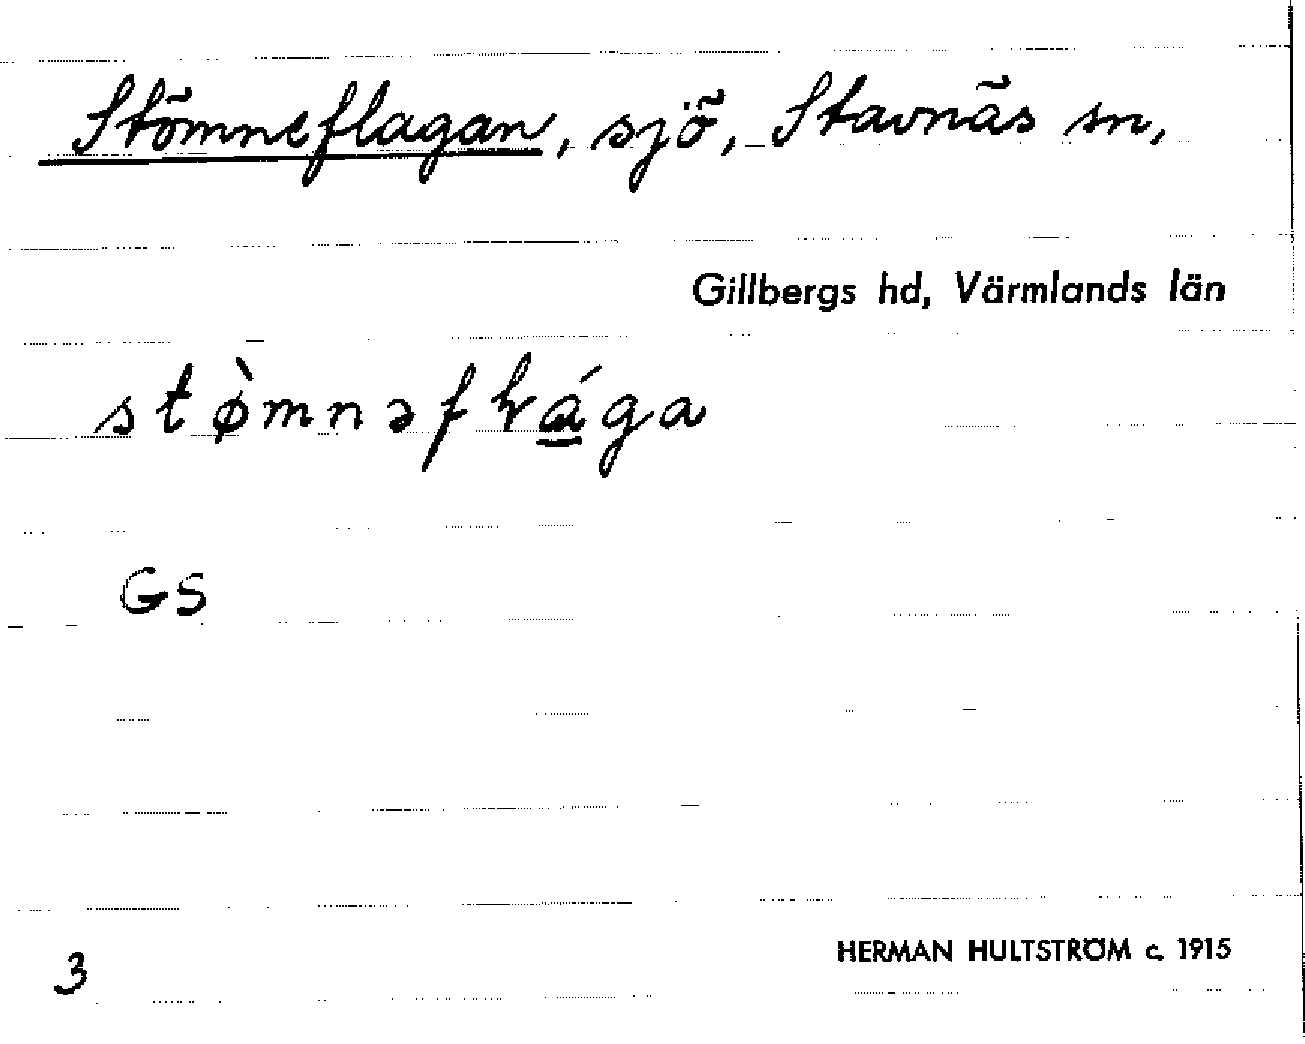 Stömneflagan, sjö, Stavnäs sn,
Gillbergs hd, Värmlands län
stø̀mnəfɽá̲ga
GS
3
HERMAN HULTSTRÖM c. 1915